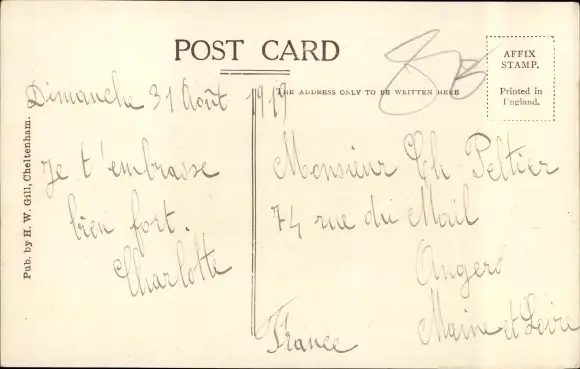 POST CARD
85
AFFIX
STAMP.
Printed in
England.
THE ADDRESS ONLY TO BE WRITTEN HERE
Pub. by H. W. Gill, Cheltenham.
Dimanche 31 Août 1919
Je t'embrasse
bien fort.
Charlotte
Monsieur Ch. Peltier
74 rue du Mail
Angers
Maine et Loire
France